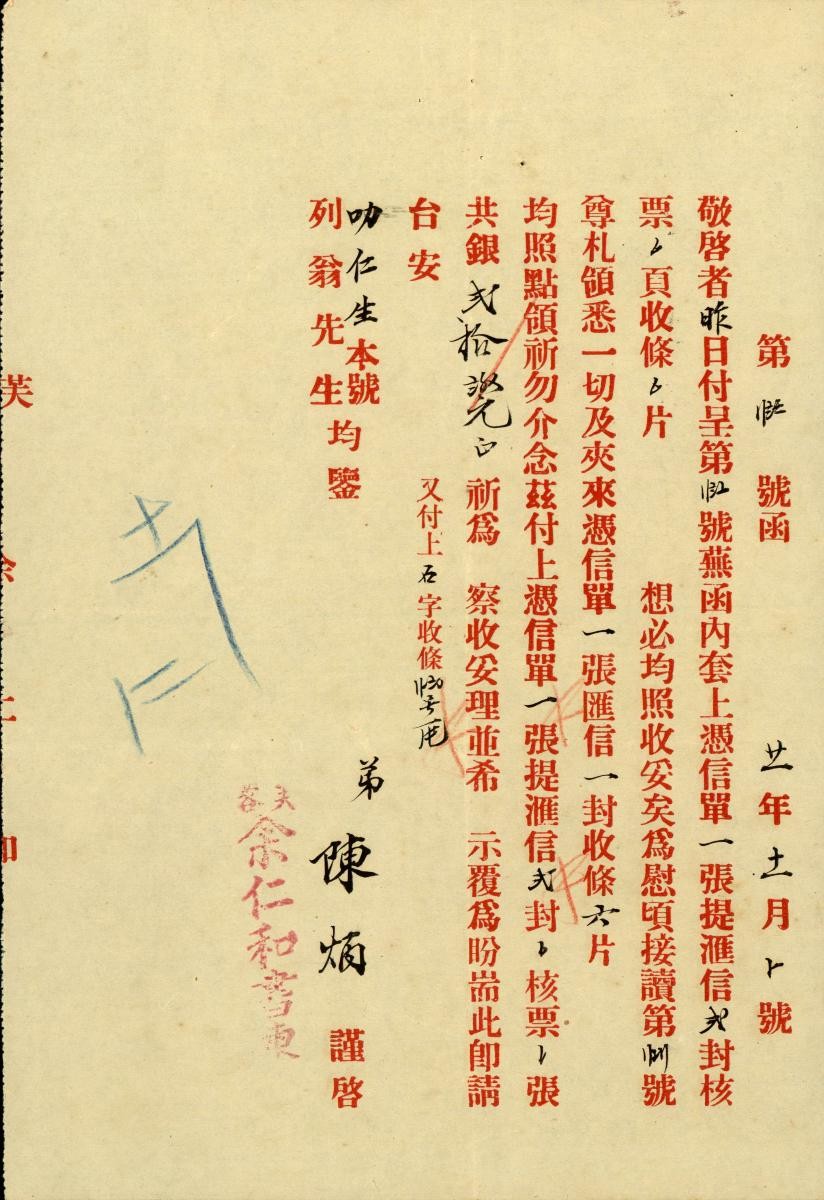 第 號函 廿年十一月卜號
敬啓者昨日付呈第 號蕪函內套上憑信單一張提滙信弍封核
票 頁收條 片 想必均照收妥矣爲慰頃接讀第 號
尊札領悉一切及夾來憑信單一張匯信一封收條六片
均照點領祈勿介念茲付上憑信單一張提滙信弍封 核票 張
共銀弍拾 元正祈爲 察收妥理並希 示覆爲盼耑此卽請
台安 又付上石字收條
叻仁生本號
列翁先生均鑒
弟陳炳 謹啓
芙蓉
余仁和書柬
十一
仁
芙 余仁和